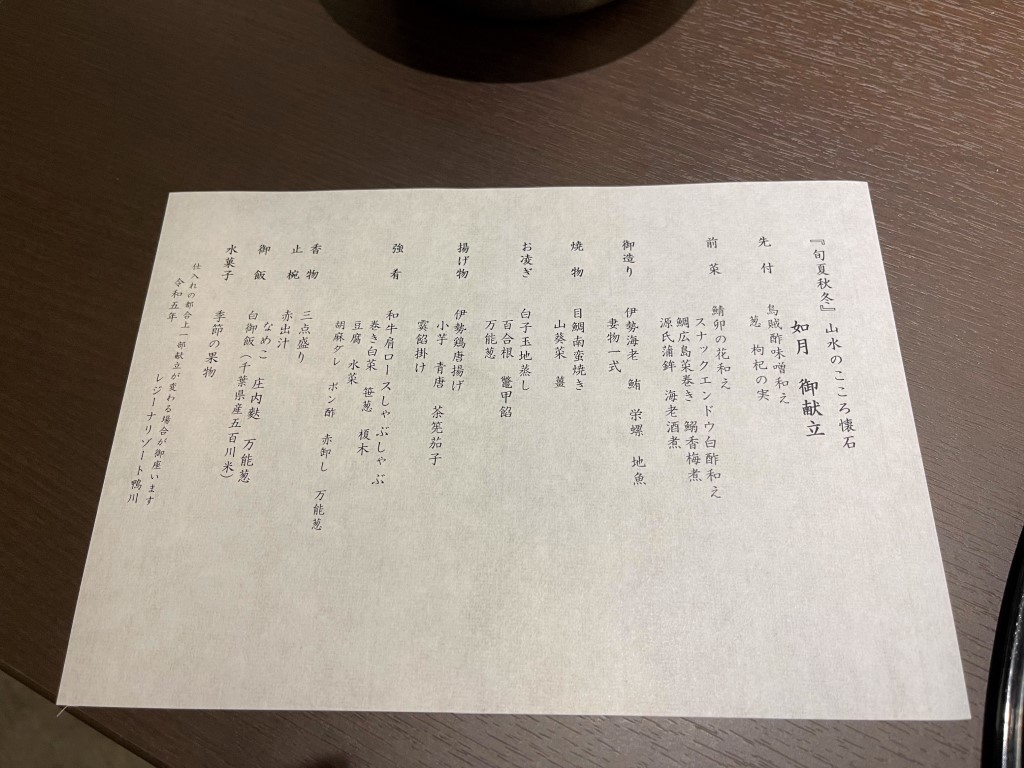 『旬夏秋冬』 山水のこころ懐石
如月 御献立
先付 烏賊酢味噌和え
葱 枸杞の実
前菜 鯖卯の花和え
スナックエンドウ白酢和え
鯛広島菜巻き 鰯香梅煮
源氏蒲鉾 海老酒煮
御造り 伊勢海老 鮪 栄螺 地魚
妻物一式
焼物 目鯛南蛮焼き
山葵菜 薑
お凌ぎ 白子玉地蒸し
百合根 鼈甲餡
万能葱
揚げ物 伊勢鶏唐揚げ
小芋 青唐 茶筅茄子
霙餡掛け
強肴 和牛肩ロースしゃぶしゃぶ
巻き白菜 笹葱 榎木
豆腐 水菜
胡麻ダレ ポン酢 赤卸し 万能葱
香物 三点盛り
止椀 赤出汁
なめこ 庄内麩 万能葱
御飯 白御飯（千葉県産五百川米）
水菓子 季節の果物
仕入れの都合上一部献立が変わる場合が御座います
令和五年 レジーナリゾート鴨川